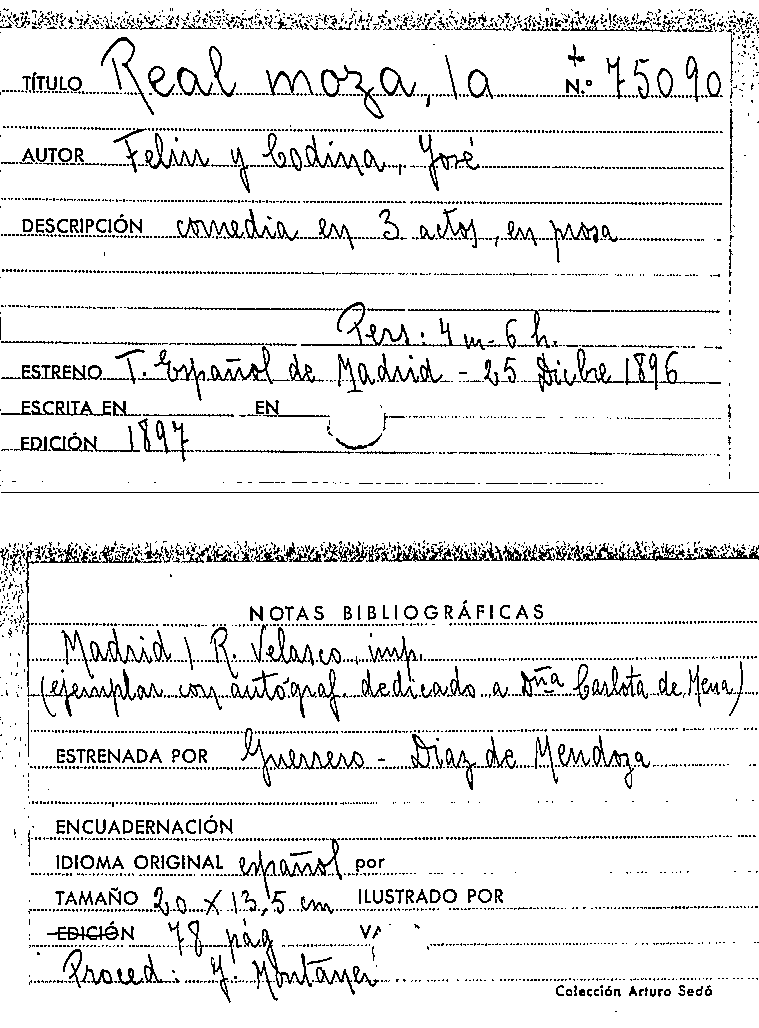 TÍTULO Real moza, la + N.º 75090
AUTOR Feliu y Codina, José
DESCRIPCIÓN comedia en 3 actos, en prosa
Pers: 4 m - 6 h.
ESTRENO T. Español de Madrid - 25 Dicbre 1896
ESCRITA EN EN
EDICIÓN 1897
NOTAS BIBLIOGRÁFICAS
Madrid / R. Velasco, imp.
(ejemplar con autógraf. dedicado a Dña Carlota de Mena)
ESTRENADA POR Guerrero - Diaz de Mendoza
ENCUADERNACIÓN
IDIOMA ORIGINAL español por
TAMAÑO 20 x 13,5 cm ILUSTRADO POR
EDICIÓN 78 pág
Proced: J. Montaner
Colección Arturo Sedó